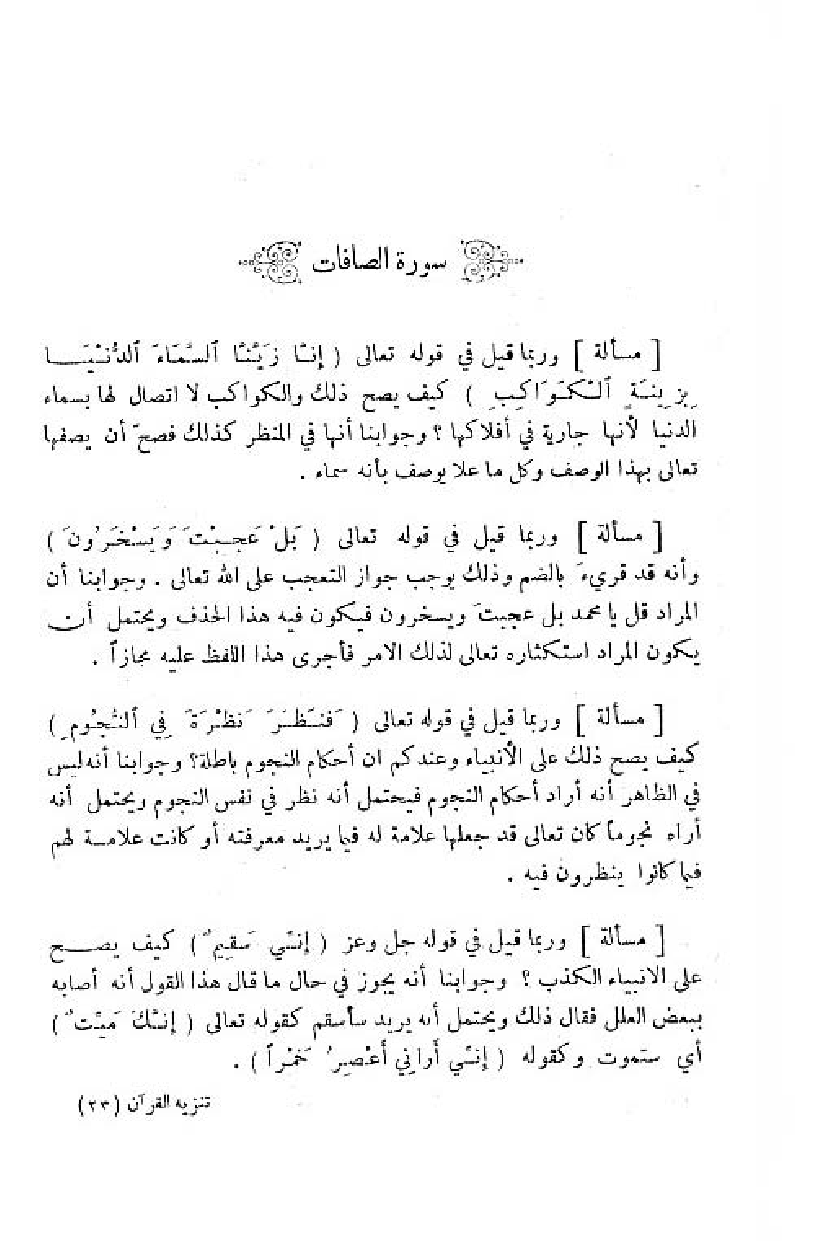 سورة الصافات
[ مسألة ] وربما قيل في قوله تعالى ( إِنَّا زَيَّنَّا ٱلسَّمَاءَ ٱلدُّنْيَا
بِزِينَةٍ ٱلْكَوَاكِبِ ) كيف يصح ذلك والكواكب لا اتصال لها بسماء
الدنيا لأنها جارية في أفلاكها ؟ وجوابنا أنها في المنظر كذلك فصحّ أن يصفها
تعالى بهذا الوصف وكل ما علا يوصف بأنه سماء .
[ مسألة ] وربما قيل في قوله تعالى ( بَلْ عَجِبْتَ وَيَسْخَرُونَ )
وأنه قد قريءَ بالضم وذلك يوجب جواز التعجب على الله تعالى . وجوابنا أن
المراد قل يا محمد بل عجبتَ ويسخرون فيكون فيه هذا الحذف ويحتمل أن
يكون المراد استكثاره تعالى لذلك الامر فأجرى هذا اللفظ عليه مجازاً .
[ مسألة ] وربما قيل في قوله تعالى ( فَنَظَرَ نَظْرَةً فِي ٱلنُّجُومِ )
كيف يصح ذلك على الأنبياء وعندكم ان أحكام النجوم باطلة؟ وجوابنا أنه ليس
في الظاهر أنه أراد أحكام النجوم فيحتمل أنه نظر في نفس النجوم ويحتمل أنه
أراد نجوماً كان تعالى قد جعلها علامة له فيما يريد معرفته أو كانت علامة لهم
فيما كانوا ينظرون فيه .
[ مسألة ] وربما قيل في قوله جل وعز ( إِنِّي سَقِيمٌ ) كيف يصح
على الانبياء الكذب ؟ وجوابنا أنه يجوز في حال ما قال هذا القول أنه أصابه
ببعض العلل فقال ذلك ويحتمل أنه يريد سأسقم كقوله تعالى ( إِنَّكَ مَيِّتٌ )
أي ستموت وكقوله ( إِنِّي أَرَانِي أَعْصِرُ خَمْراً ) .
تنزيه القرآن (٢٣)